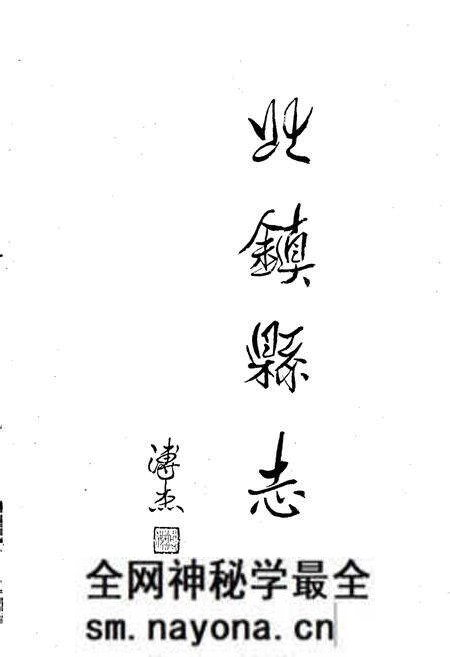 北鎮縣志
溥杰
全网神秘学最全
sm.nayona.cn